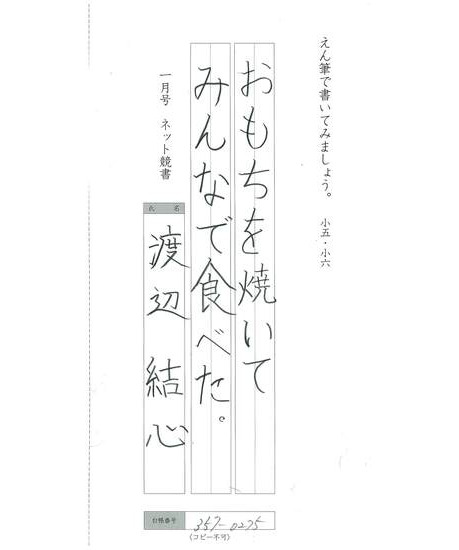 えん筆で書いてみましょう。 小五・小六
おもちを焼いて
みんなで食べた。
一月号 ネット競書
氏 名
渡辺 結心
台帳番号 357-0275
(コピー不可)